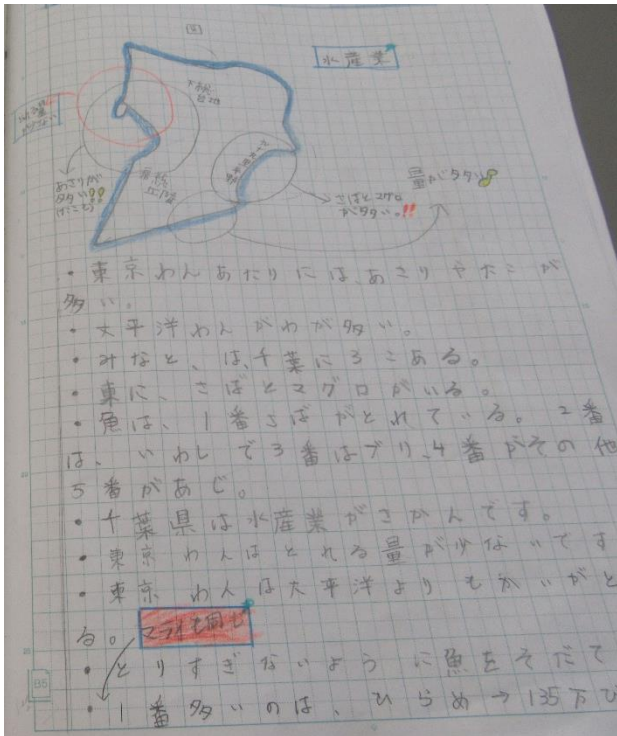 図
水産業
量が
少ない
下総
台地
房総
丘陵
あさりが
多い
(たこも)
さばとマグロ
が多い。!!
量が多い
・東京わんあたりには、あさりやたこが
多い。
・太平洋わんがわが多い。
・みなと、は、千葉に3こある。
・東に、さばとマグロがいる。
・魚は、1番さばがとれている。2番
は、いわしで3番はブリ、4番がその他
5番があじ。
・千葉県は水産業がさかんです。
・東京わんはとれる量が少ないです
・東京わんは太平洋よりもかいがと
る。マダイも同じ
・とりすぎないように魚をそだて
・1番多いのは、ひらめ→135万び
B5